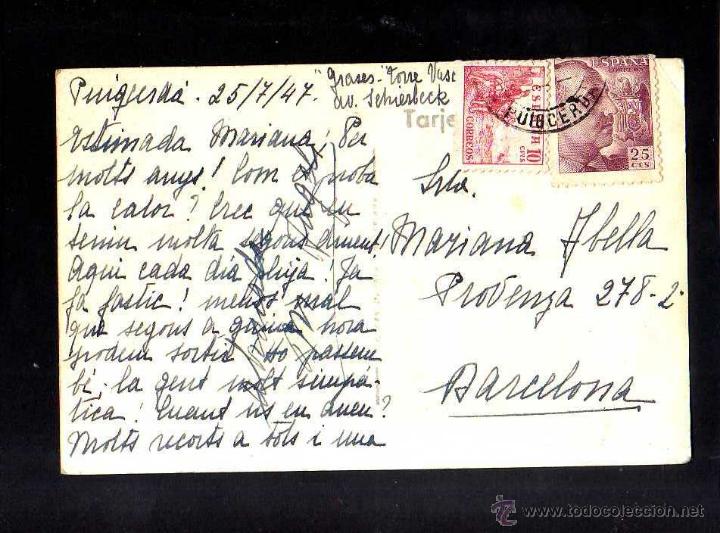 Puigcerdà. 25/7/47.
"Grases" Torre Vasc
av. Schierbeck
Tarje
Estimada Mariana: Per
molts anys! Com es proba
la calor? Crec que en
teniu molta segons diuen!
Aqui cada dia pluja! Ja
fa fastic! menos mal
que segons a quina hora
podem sortir. Ho passem
bé, la gent molt simpà-
tica! Cuant us en aneu?
Molts recorts a tots i una
CORREOS
10
CTVS
PUIGCERDA
ESPAÑA
25
CTS
Srta.
Mariana Abella
Provenza 278-2º
Barcelona
www.todocoleccion.net